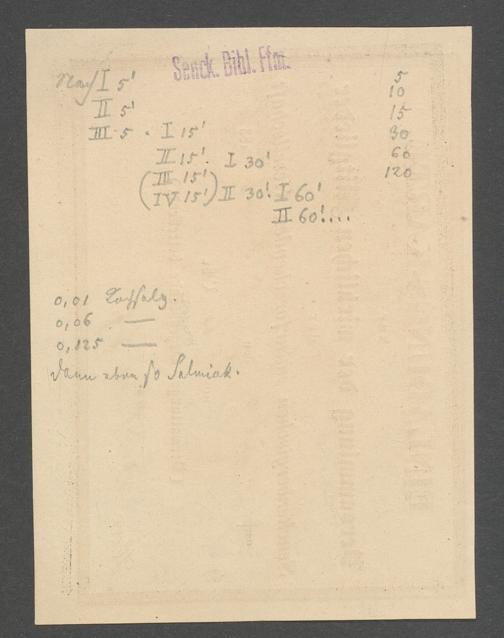 Senck. Bibl. Ffm.
Nach I 5' 5
II 5' 10
III 5 . I 15' 15
II 15'. I 30' 30
(III 15') 60
(IV 15') II 30'. I 60' 120
II 60'....
0,01 Kochsalz.
0,06 —
0,125 —
dann eben so Salmiak.